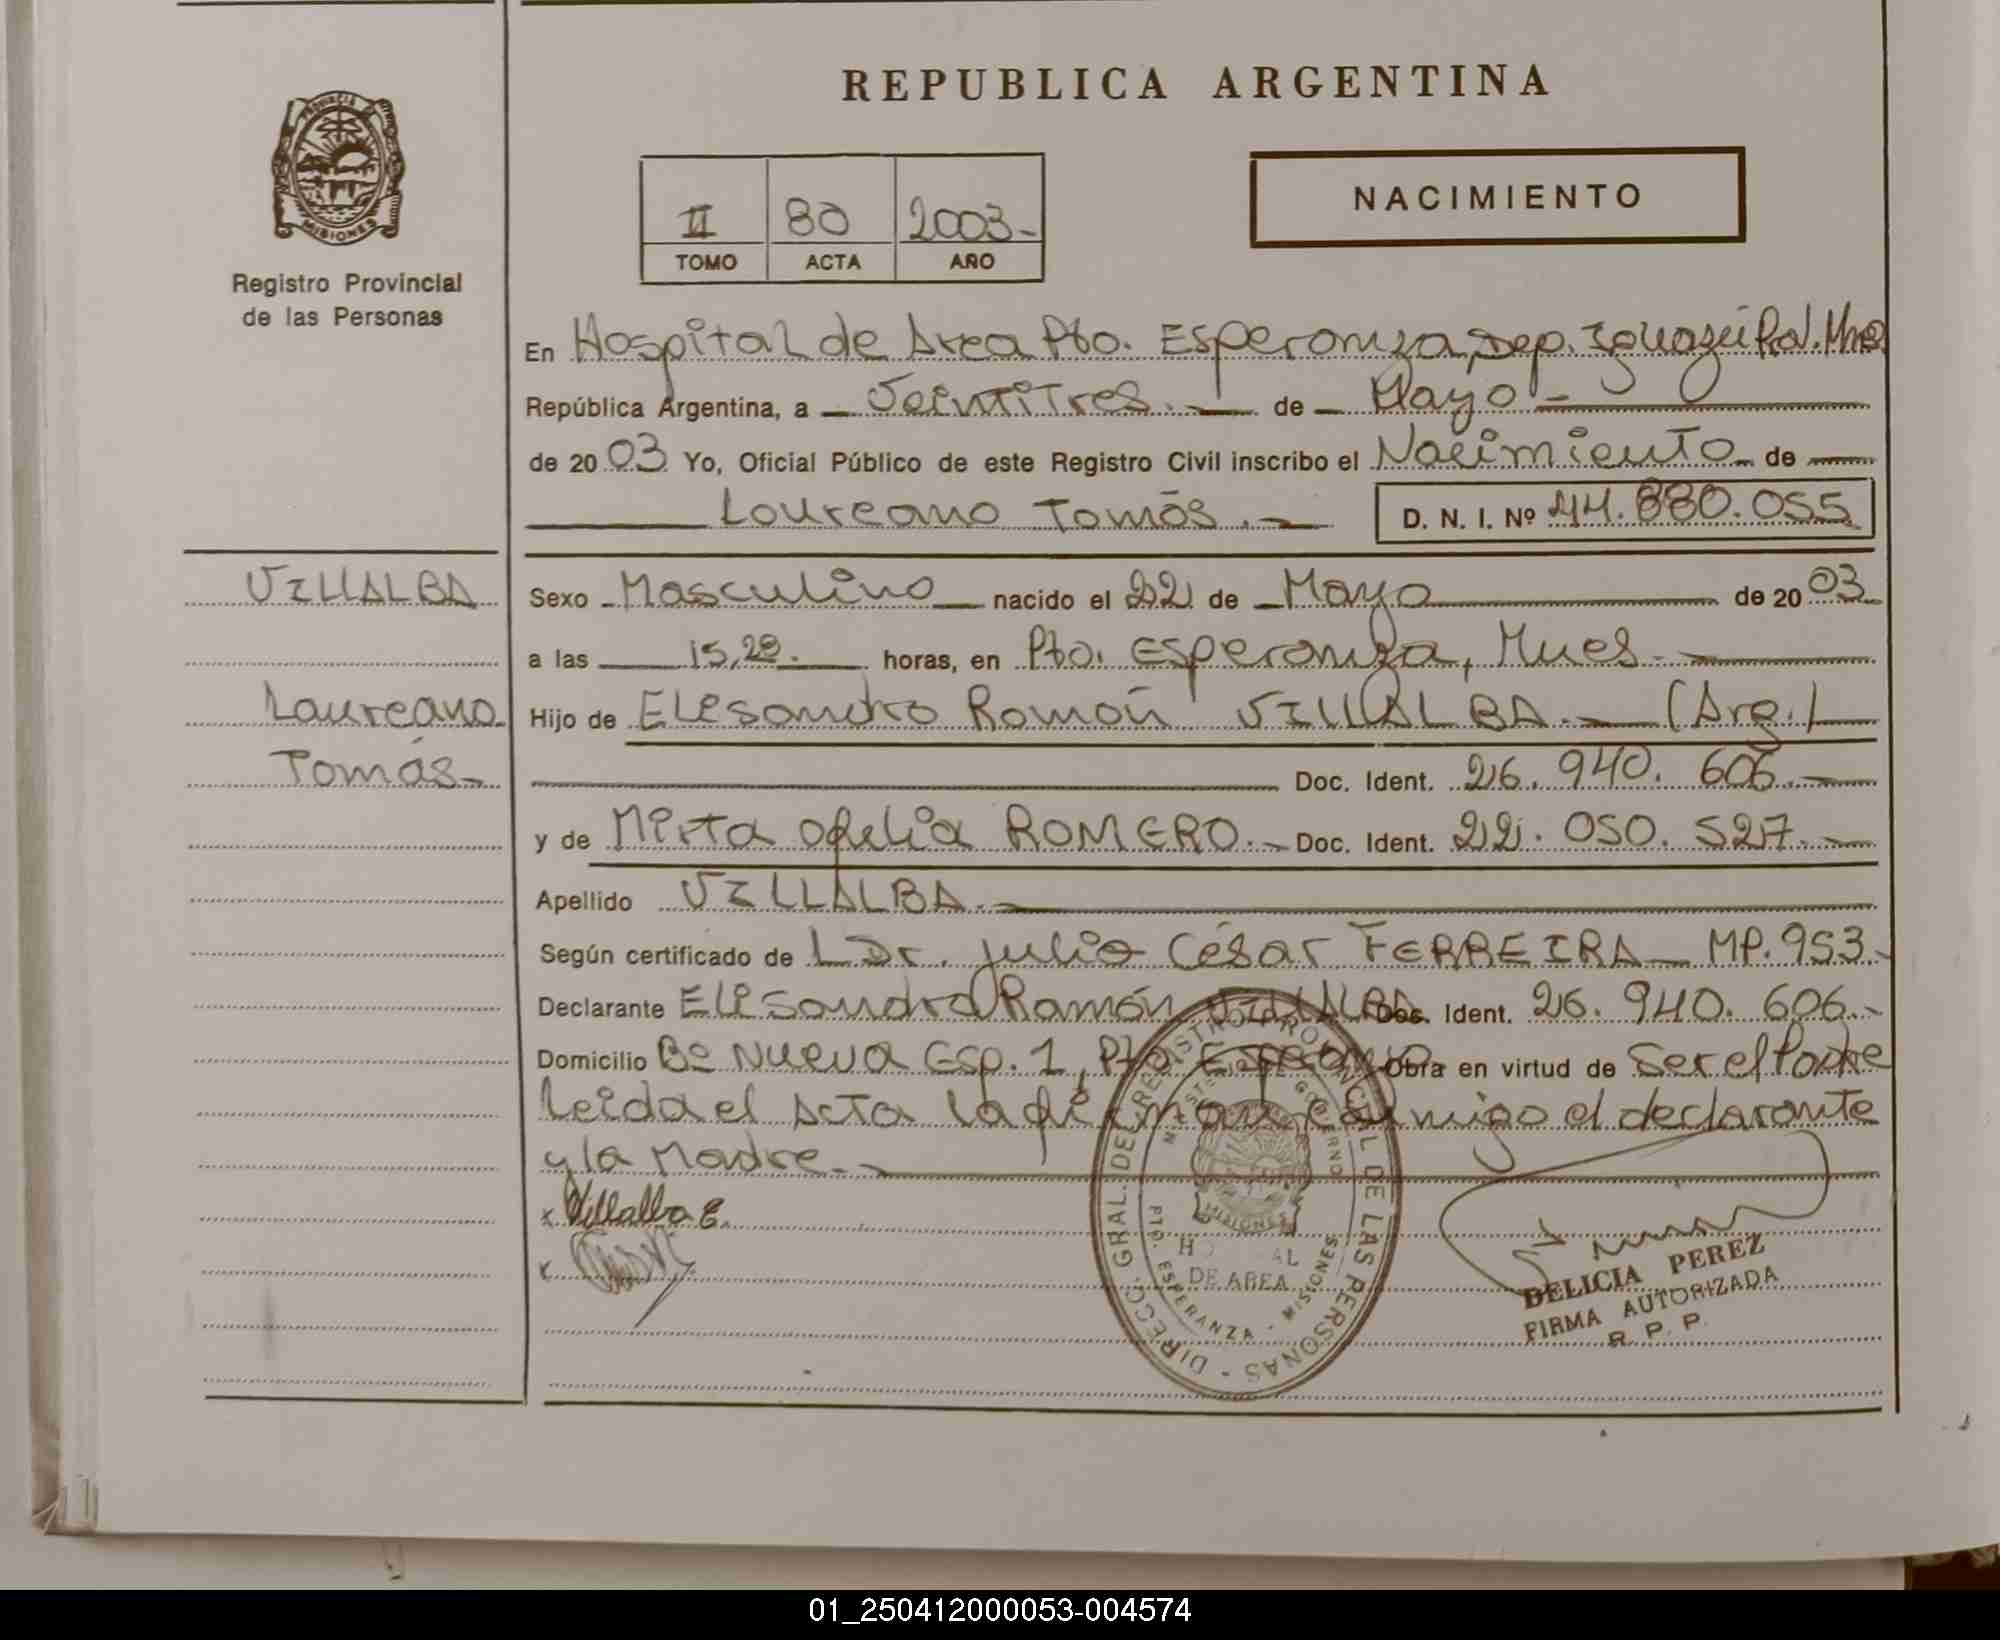 REPUBLICA ARGENTINA
PROVINCIA DE
MISIONES
Registro Provincial
de las Personas
II 80 2003-
TOMO ACTA AÑO
NACIMIENTO
En Hospital de Area Pto. Esperanza, Dep. Iguazú Prov. Mnes
República Argentina, a Veintitres. de Mayo -
de 2003 Yo, Oficial Público de este Registro Civil inscribo el Nacimiento de
Laureano Tomás. D. N. I. Nº 44.880.055
VILLALBA
Laureano
Tomás
Sexo Masculino nacido el 22 de Mayo de 2003
a las 15,28. horas, en Pto. Esperanza, Mnes
Hijo de Elisandro Ramón VILLALBA. (Arg.)
Doc. Ident. 26. 940. 606.
y de Mirta Ofelia ROMERO. Doc. Ident. 22. 050. 527.
Apellido VILLALBA.
Según certificado de L Dr. Julio César FERREIRA MP. 953.
Declarante Elisandro Ramón VILLALBA Doc. Ident. 26. 940. 606.
Domicilio Bº Nueva Esp. 1, Pto. Esperanza Obra en virtud de Ser el Padre
Leida el Acta la firman conmigo el declarante
y la Madre.
x Villalba E.
x
DIRECC. GRAL. DEL REGISTRO PROVINCIAL DE LAS PERSONAS
MINISTERIO GOBIERNO
MISIONES
DE AREA
PTO. ESPERANZA - MISIONES
DELICIA PEREZ
FIRMA AUTORIZADA
R. P. P.
01_250412000053-004574